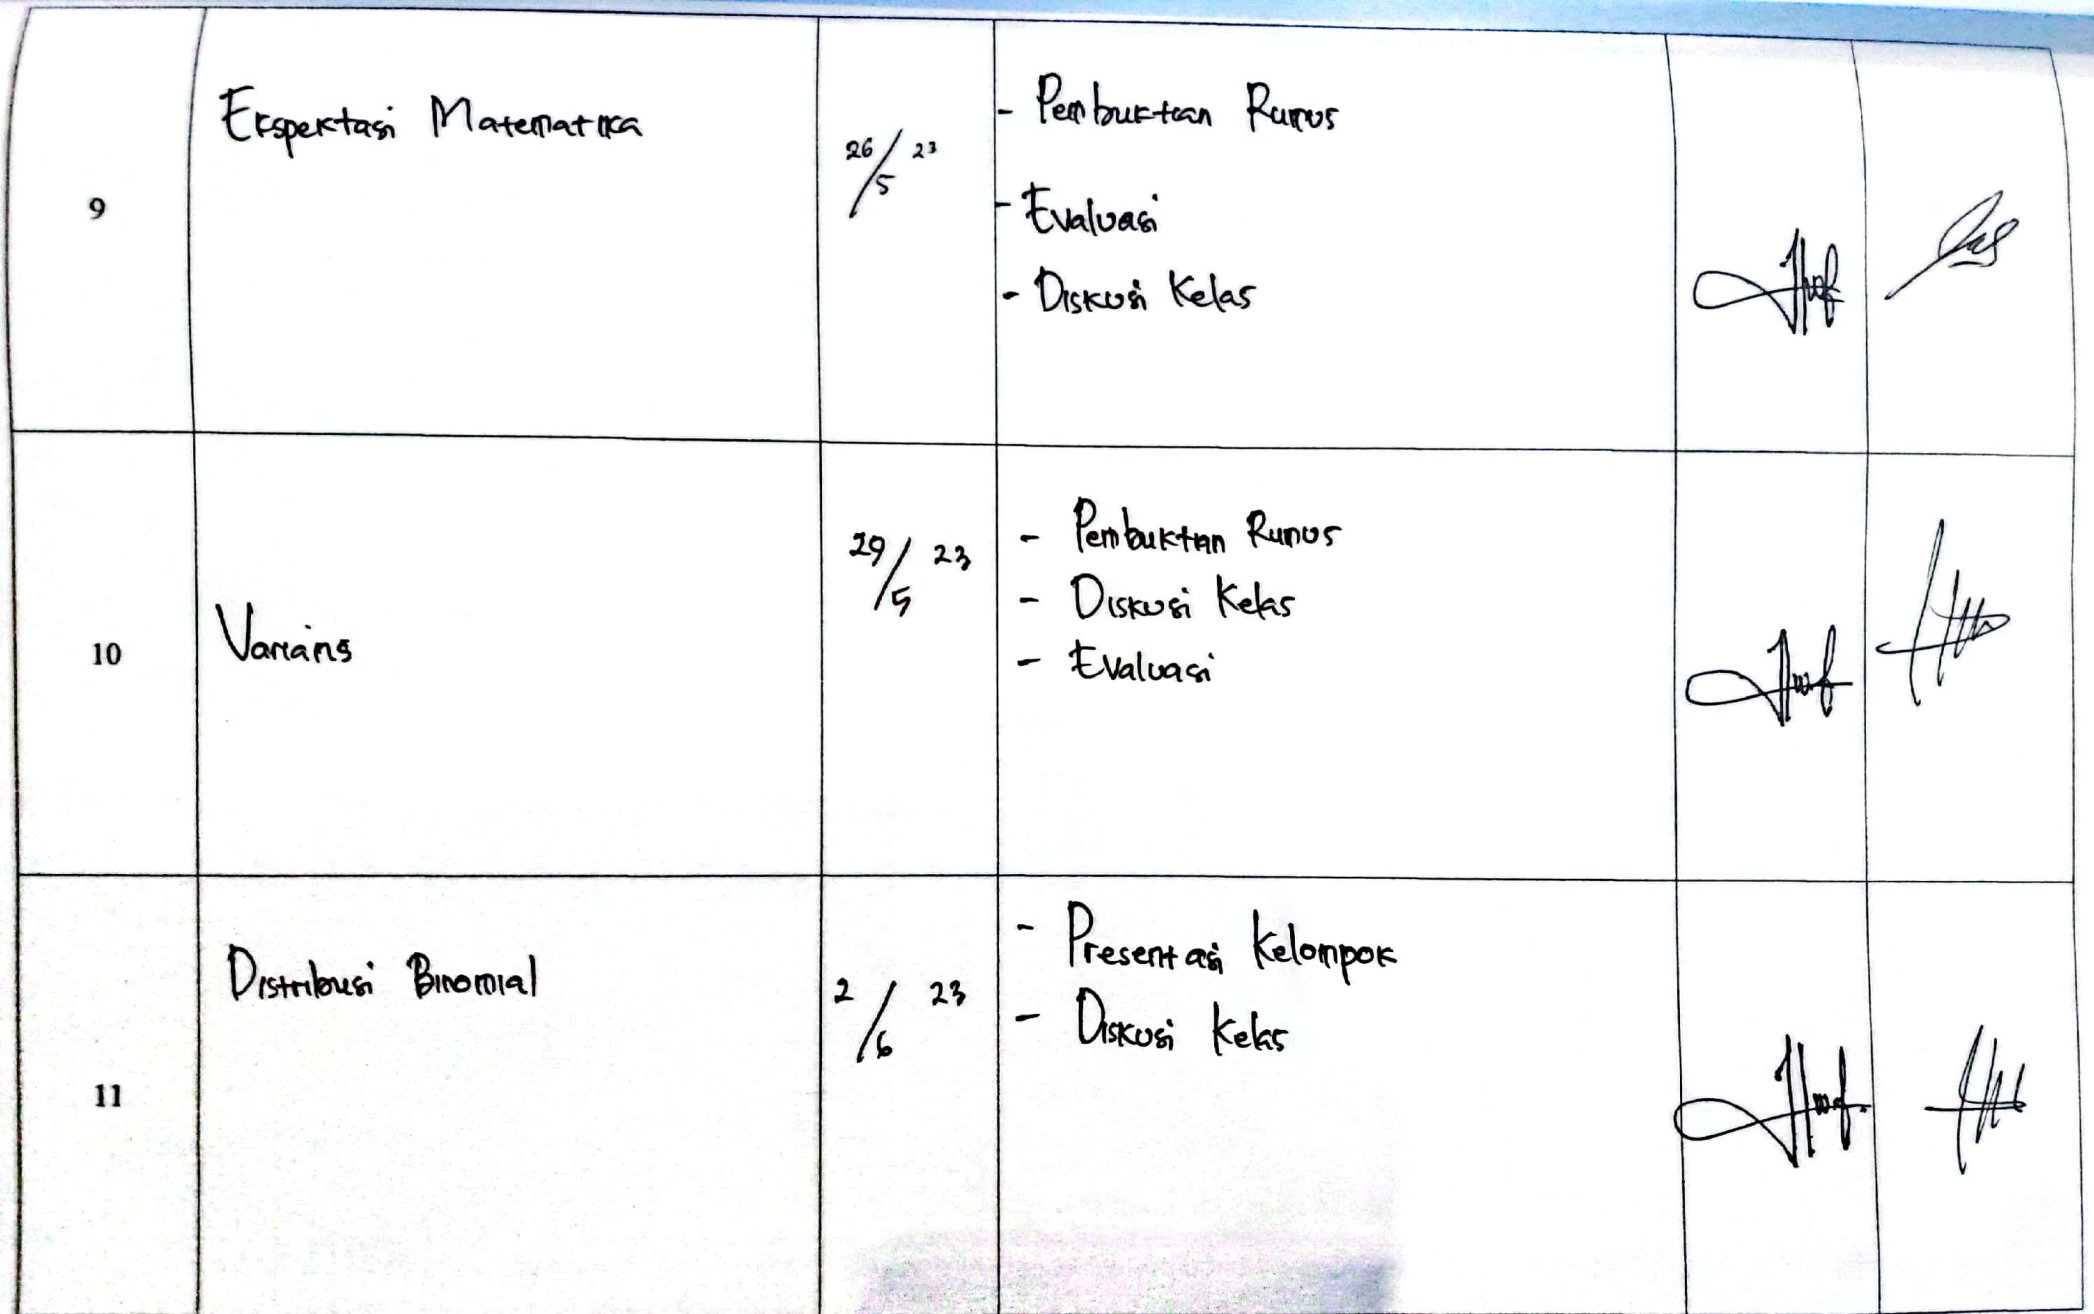 9
Ekspektasi Matematika
26/5 23
- Pembuktian Rumus
- Evaluasi
- Diskusi Kelas
10
Varians
29/5 23
- Pembuktian Rumus
- Diskusi Kelas
- Evaluasi
11
Distribusi Binomial
2/6 23
- Presentasi Kelompok
- Diskusi Kelas